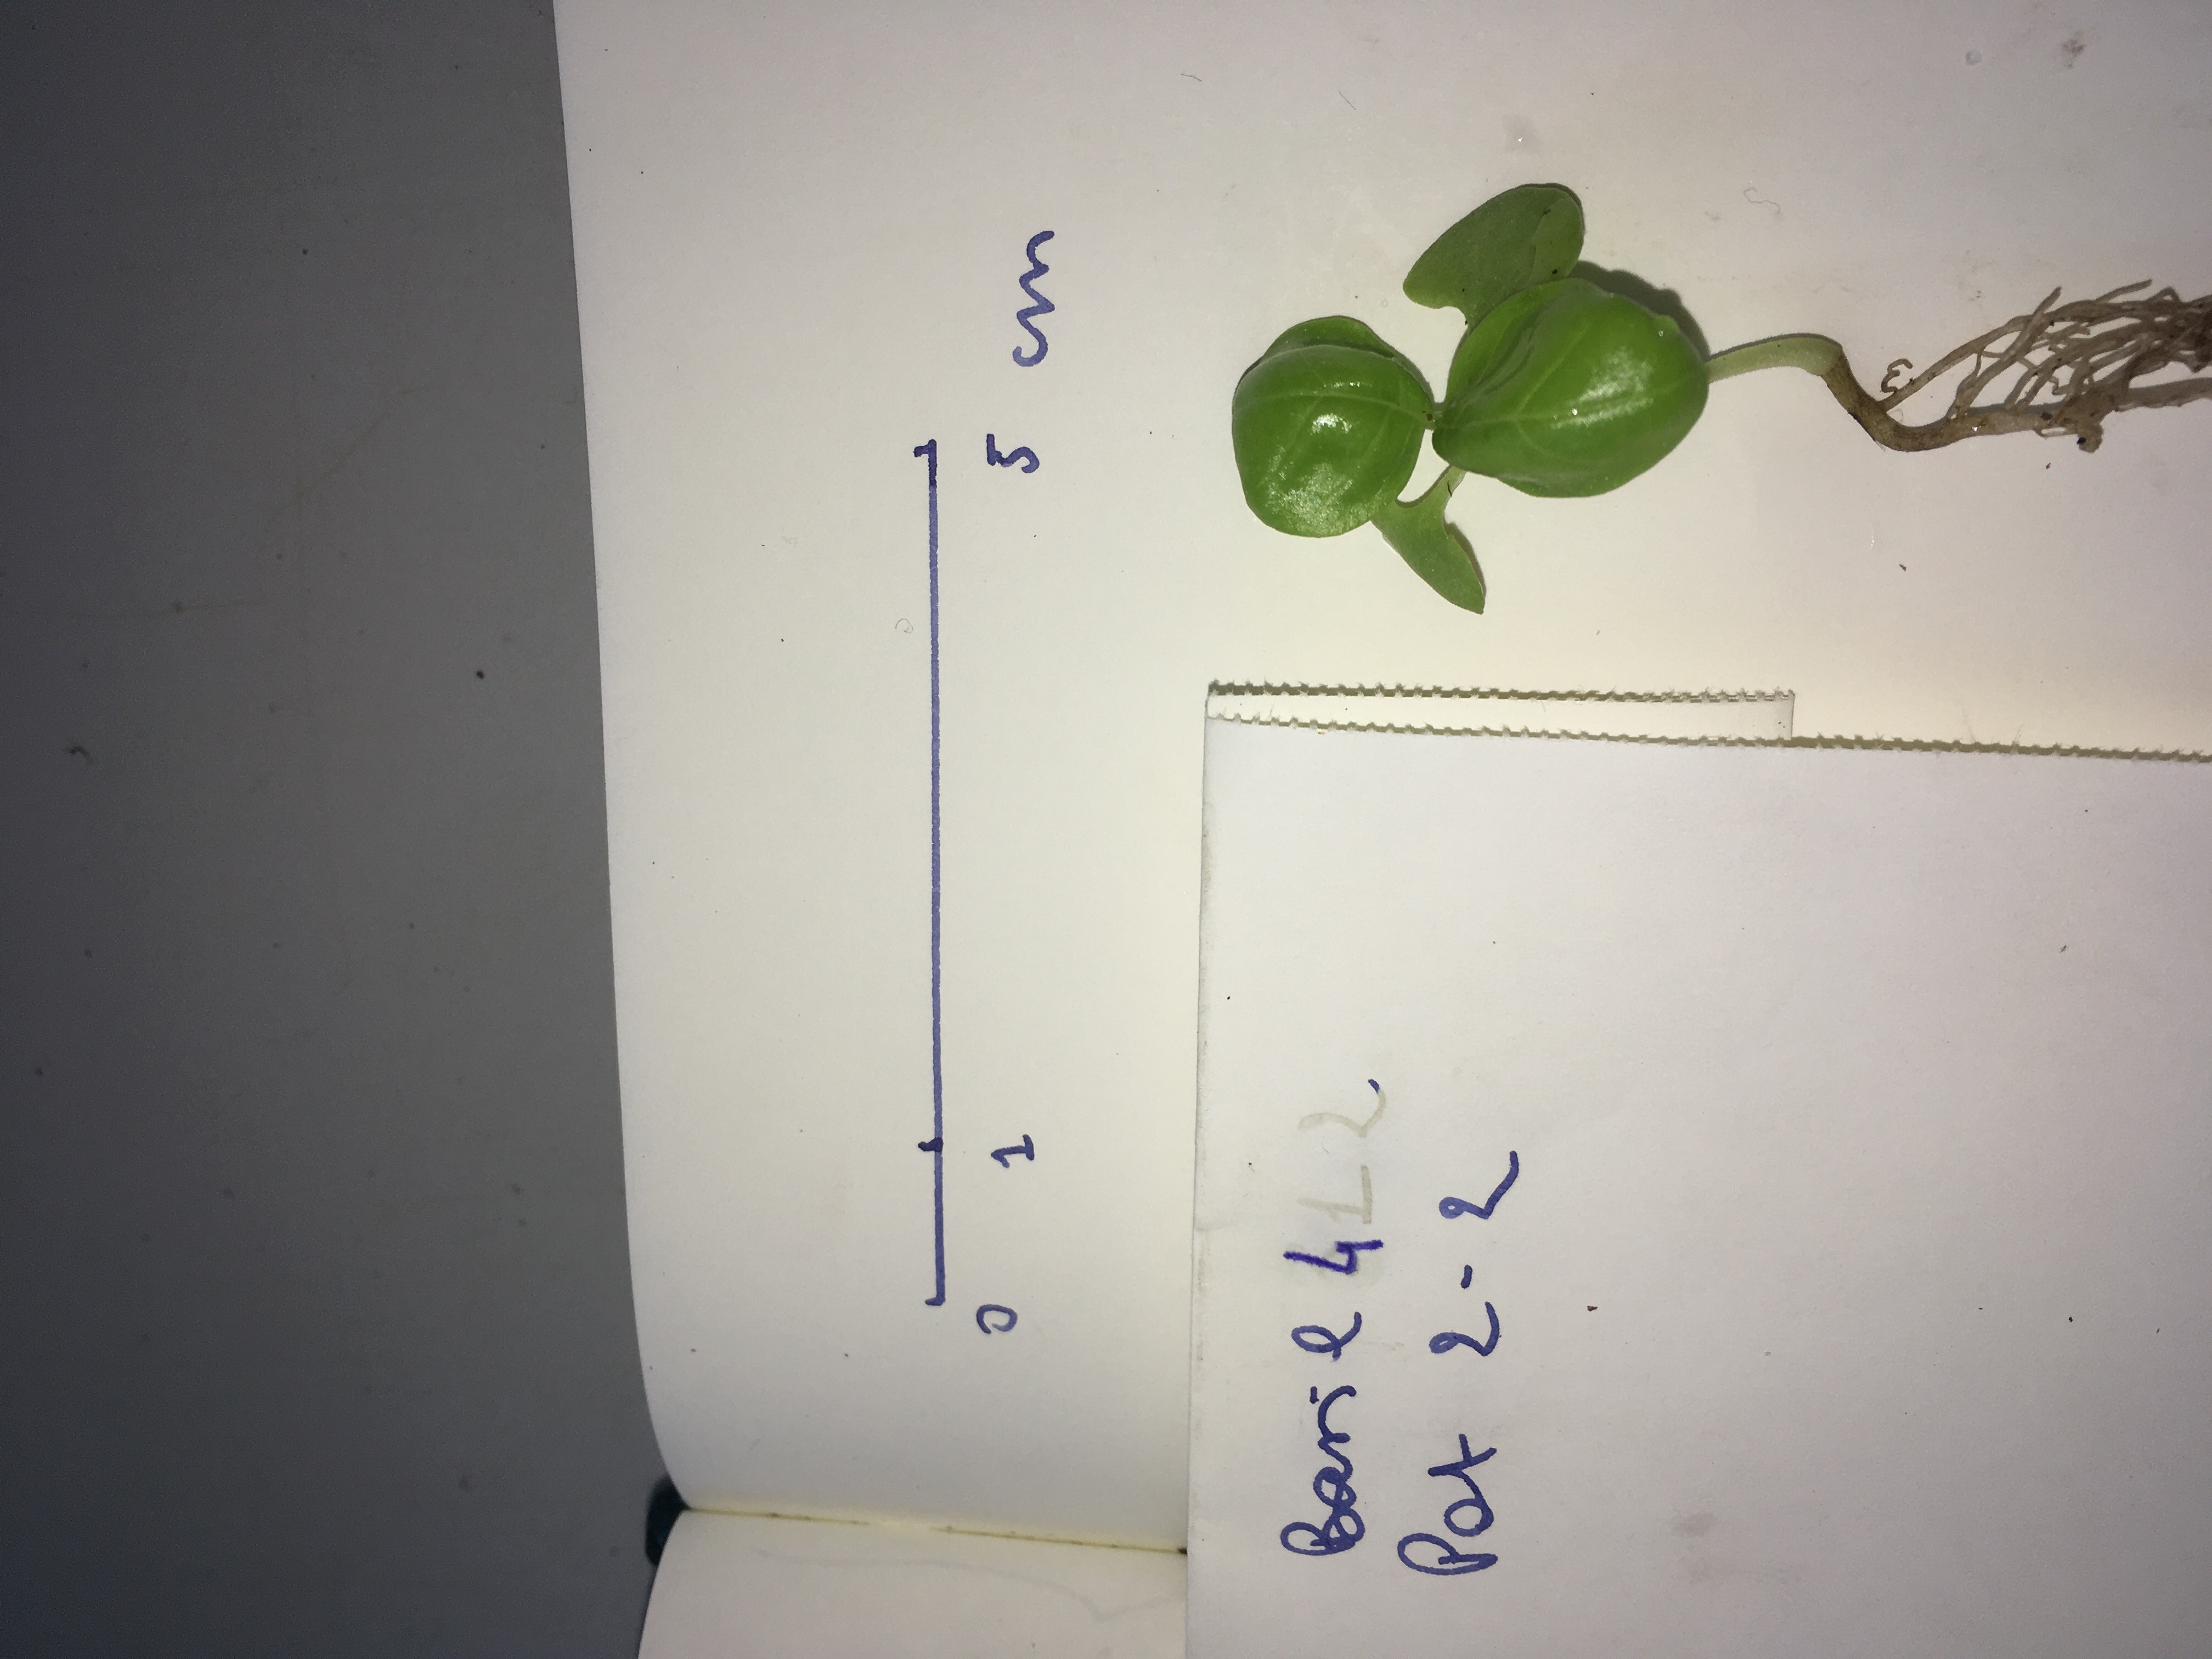 0 1 5 cm
Basil 412
Pot 2-2